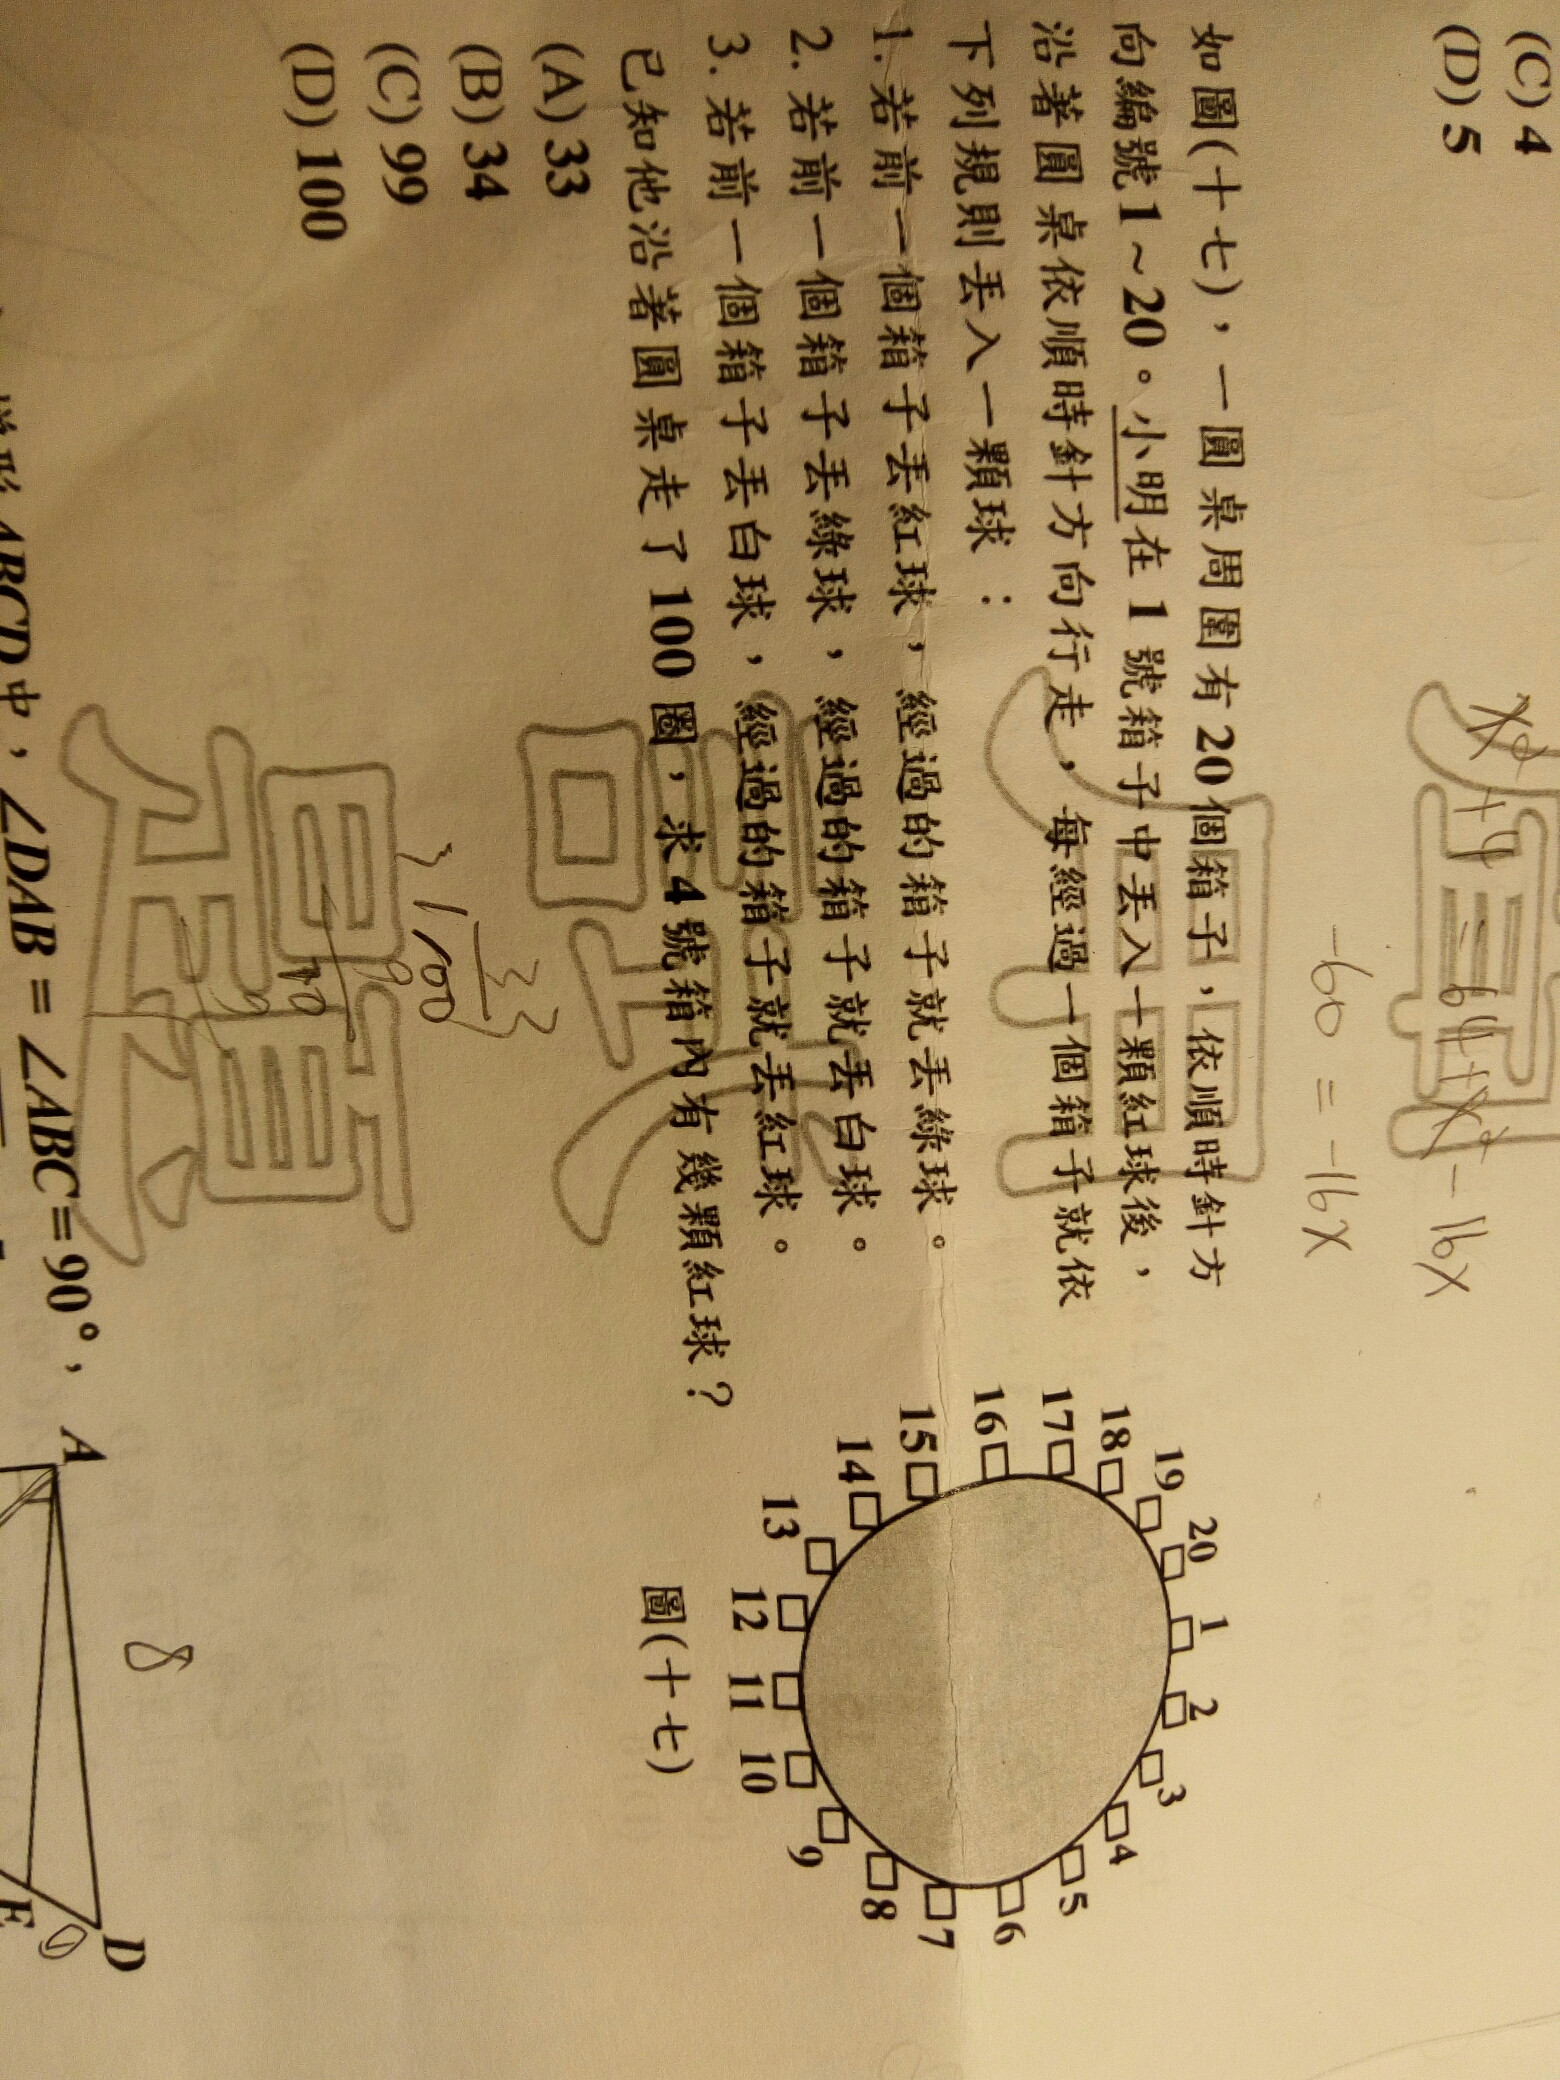 (C) 4
(D) 5
x² + 4 = 64 + x² - 16x
-60 = -16x
如圖(十七),一圓桌周圍有20個箱子,依順時針方
向編號1~20。小明在1號箱子中丟入一顆紅球後,
沿著圓桌依順時針方向行走,每經過一個箱子就依
下列規則丟入一顆球:
1. 若前一個箱子丟紅球,經過的箱子就丟綠球。
2. 若前一個箱子丟綠球,經過的箱子就丟白球。
3. 若前一個箱子丟白球,經過的箱子就丟紅球。
已知他沿著圓桌走了100圈,求4號箱內有幾顆紅球?
(A) 33
(B) 34
(C) 99
(D) 100
20 1 2 3 4 5 6 7 8 9 10 11 12 13 14 15 16 17 18 19
圖(十七)
33
3 100
9
10
9
ABCD中,∠DAB = ∠ABC = 90°,
A
D
E
8